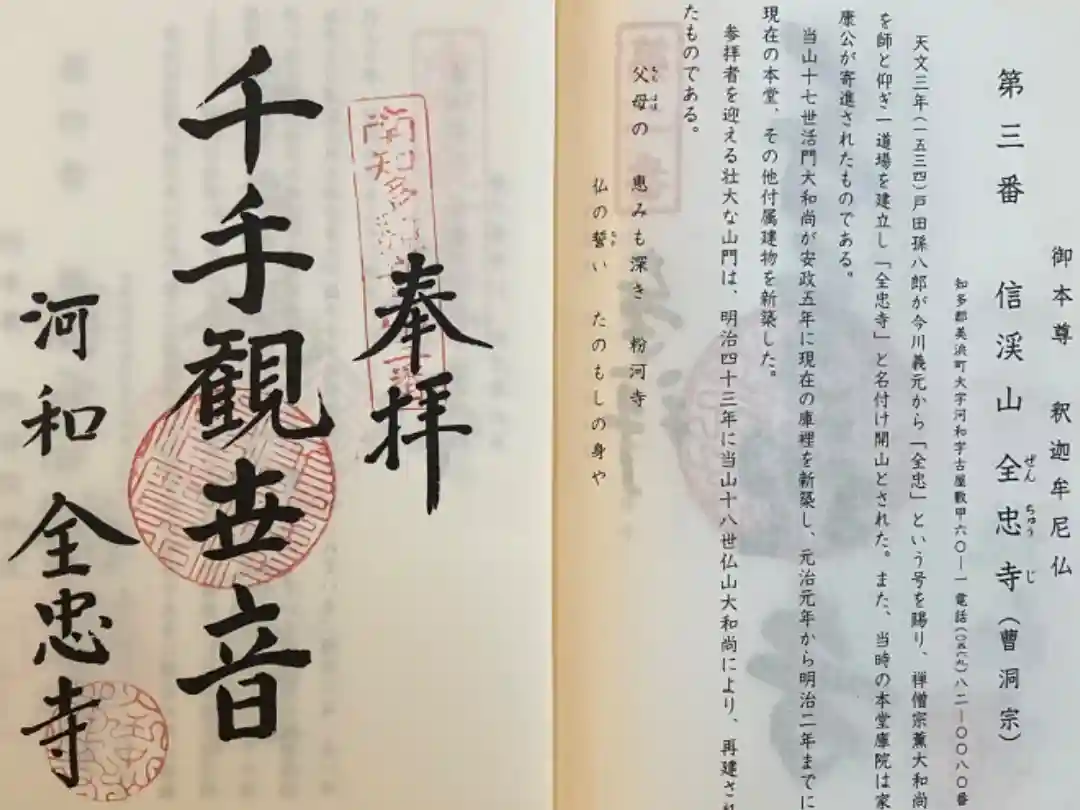 御本尊 釈迦牟尼仏
第三番 信渓山 全忠寺(曹洞宗)
ぜんちゅうじ
知多郡美浜町大字河和字古屋敷甲六〇―一 電話(〇五六九)八二―〇〇八〇番
天文三年(一五三四)戸田孫八郎が今川義元から「全忠」という号を賜り、禅僧宗薫大和尚
を師と仰ぎ一道場を建立し「全忠寺」と名付け開山とされた。また、当時の本堂庫院は家
康公が寄進されたものである。
当山十七世活門大和尚が安政五年に現在の庫裡を新築し、元治元年から明治二年までに
現在の本堂、その他付属建物を新築した。
参拝者を迎える壮大な山門は、明治四十三年に当山十八世仏山大和尚により、再建され
たものである。
父母の 恵みも深き 粉河寺
ちちはは
仏の誓い たのもしの身や
奉拝
南知多
千手観世音
河和 全忠寺